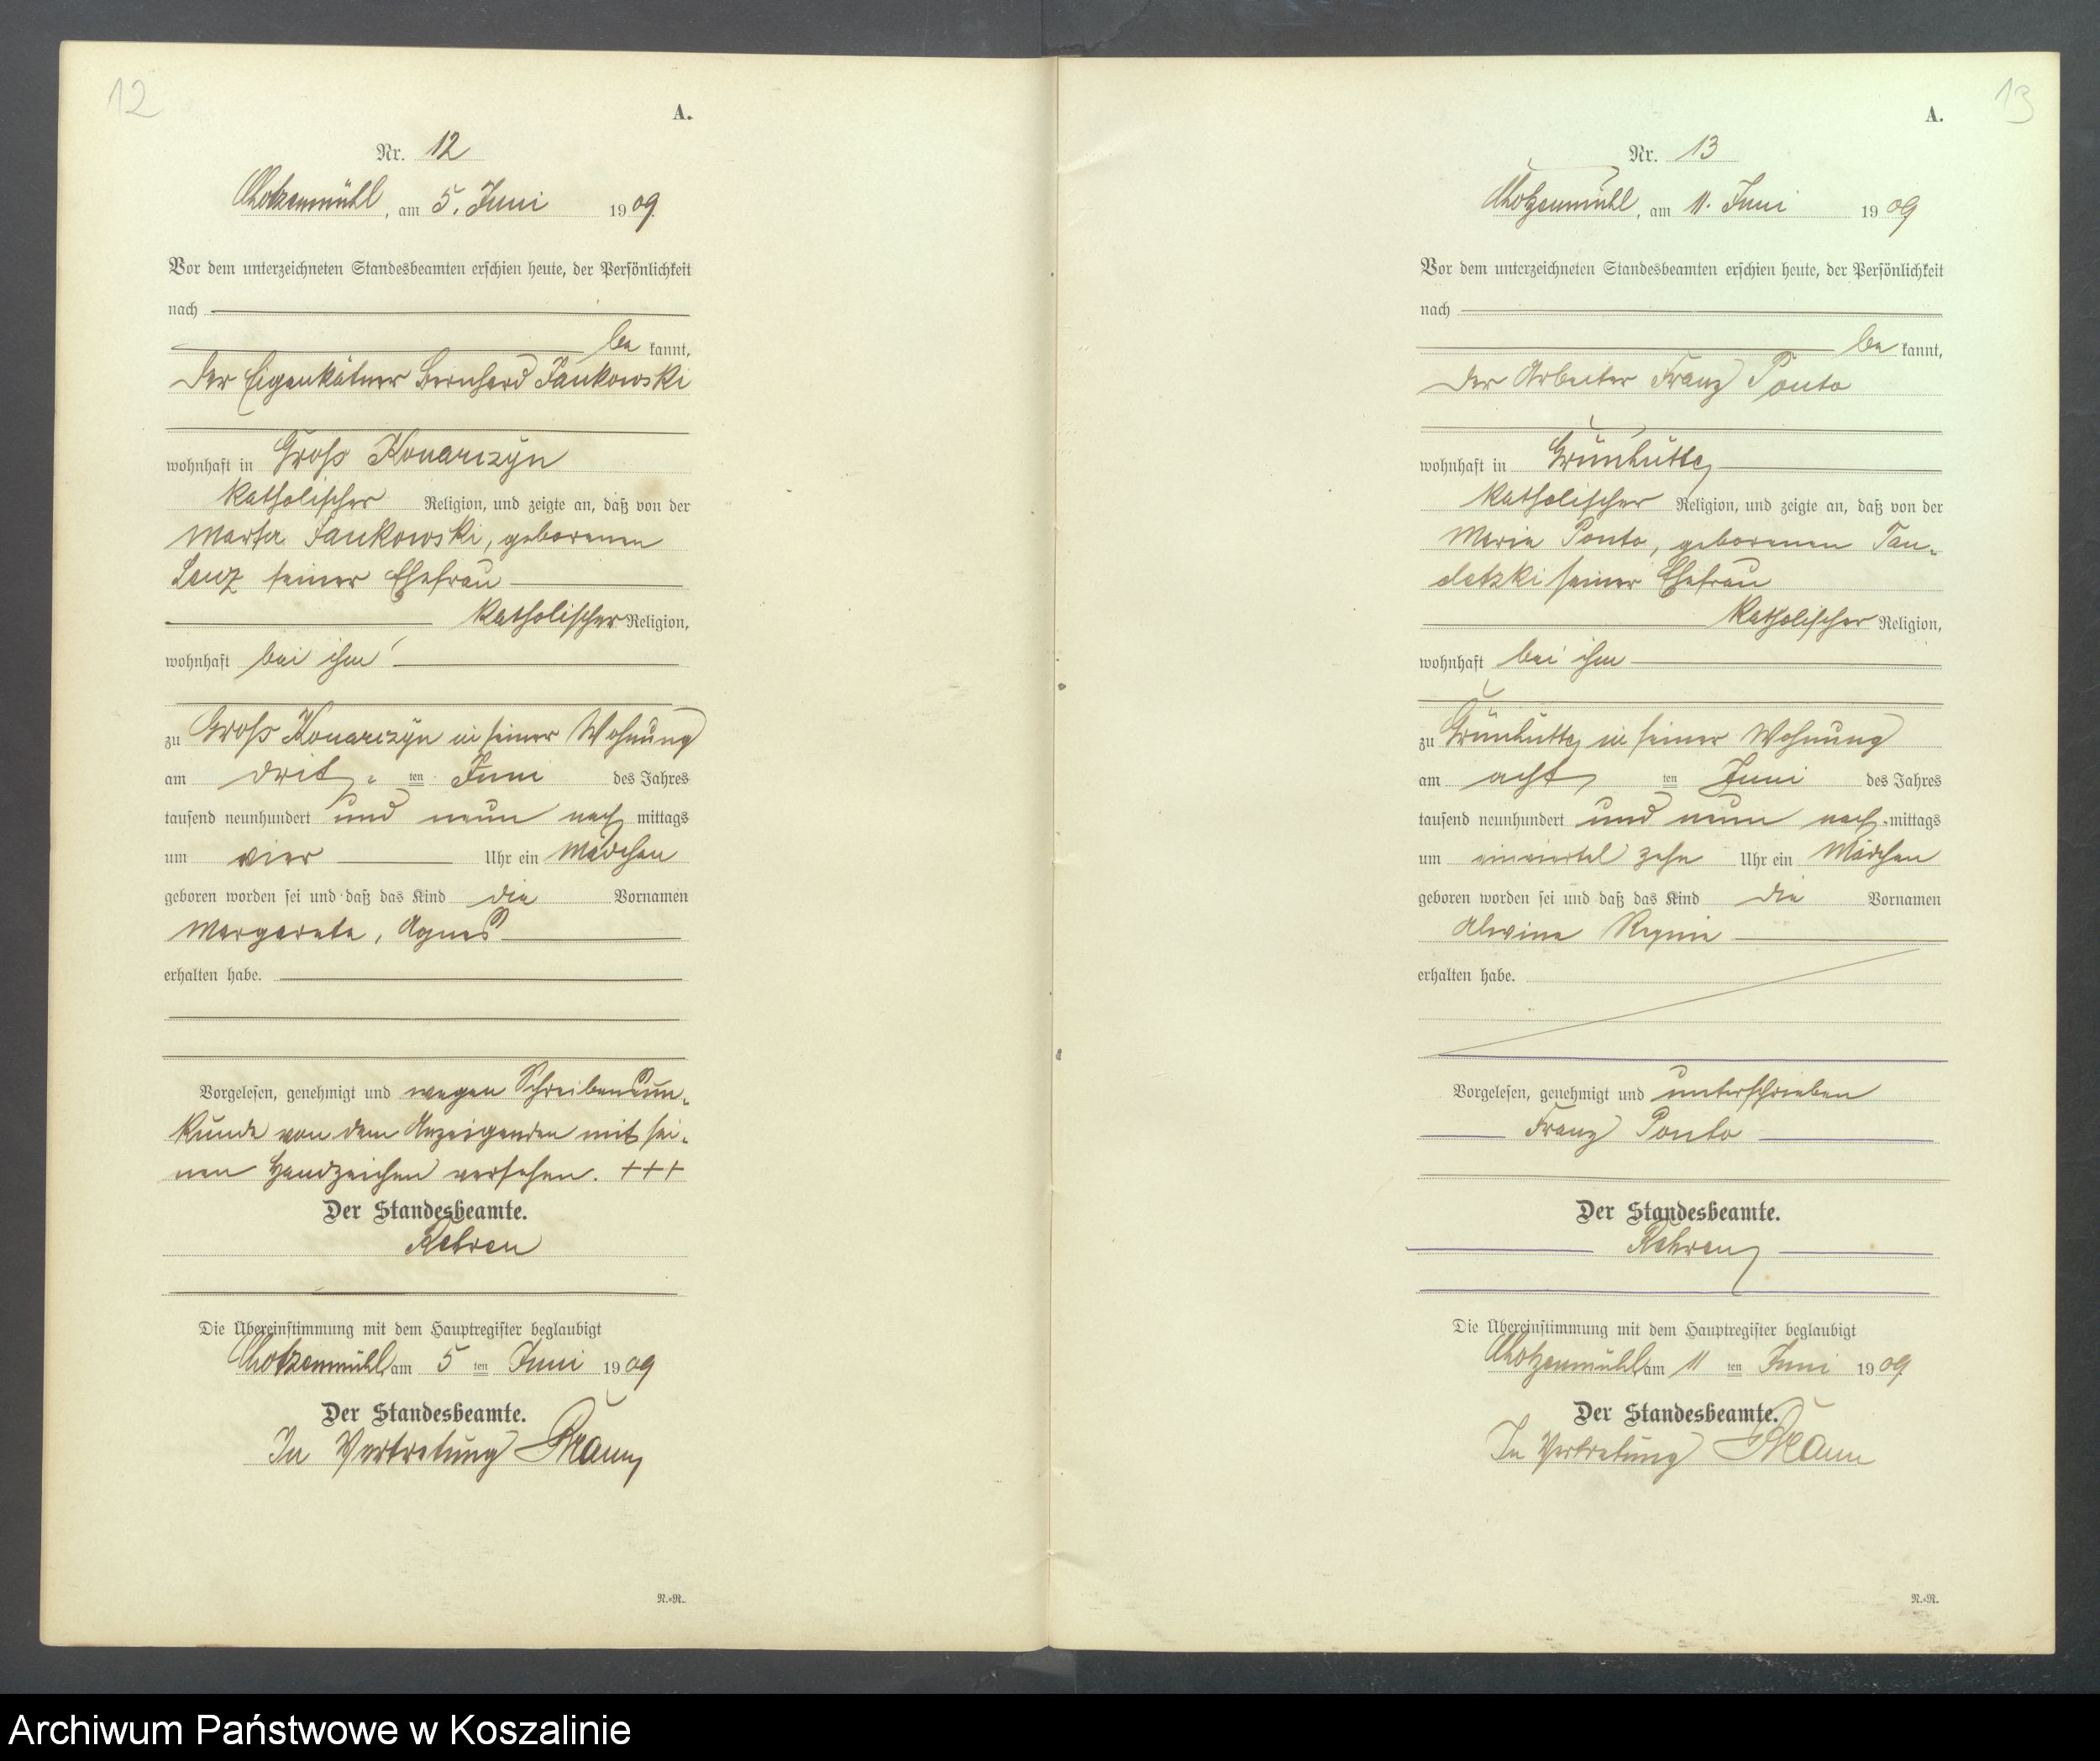 12
A.
Nr. 12
Chotzenmühl, am 5. Juni 1909.
Vor dem unterzeichneten Standesbeamten erschien heute, der Persönlichkeit
nach
be kannt,
der Eigenkätner Bernhard Jankowski
wohnhaft in Groß Konarczyn
katholischer Religion, und zeigte an, daß von der
Marta Jankowski, geborenen
Lenz seiner Ehefrau
katholischer Religion,
wohnhaft bei ihm
zu Groß Konarczyn in seiner Wohnung
am drit- ten Juni des Jahres
tausend neunhundert und neun nach mittags
um vier Uhr ein Mädchen
geboren worden sei und daß das Kind die Vornamen
Margareta, Agnes
erhalten habe.
Vorgelesen, genehmigt und wegen Schreibensun-
kunde von dem Anzeigenden mit sei-
nen Handzeichen versehen. +++
Der Standesbeamte.
Rehren
Die Übereinstimmung mit dem Hauptregister beglaubigt
Chotzenmühl, am 5 ten Juni 1909
Der Standesbeamte.
In Vertretung Braun
N.-N.
13
A.
Nr. 13
Chotzenmühl, am 11. Juni 1909
Vor dem unterzeichneten Standesbeamten erschien heute, der Persönlichkeit
nach
be kannt,
der Arbeiter Franz Ponto
wohnhaft in Grünhütte
katholischer Religion, und zeigte an, daß von der
Maria Ponto, geborenen Tan-
detzki seiner Ehefrau
katholischer Religion,
wohnhaft bei ihm
zu Grünhütte in seiner Wohnung
am acht ten Juni des Jahres
tausend neunhundert und neun nach-mittags
um einviertel zehn Uhr ein Mädchen
geboren worden sei und daß das Kind die Vornamen
Alwine
erhalten habe.
Vorgelesen, genehmigt und unterschrieben
Franz Ponto
Der Standesbeamte.
Rehren
Die Übereinstimmung mit dem Hauptregister beglaubigt
Chotzenmühl, am 11 ten Juni 1909
Der Standesbeamte.
In Vertretung Braun
N.-N.
Archiwum Państwowe w Koszalinie